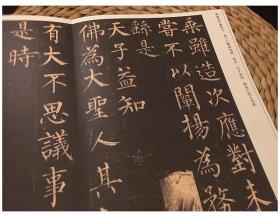 乘雖造次應對未
嘗不以闡揚為務
繇是
天子益知
佛為大聖人其
有大不思議事
是時